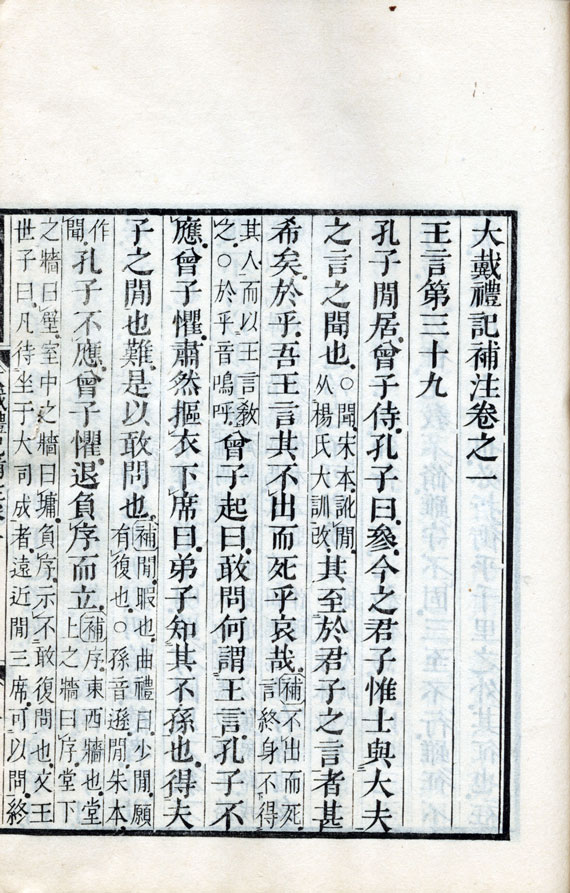 大戴禮記補注卷之一
王言第三十九
孔子閒居曾子侍孔子曰參今之君子惟士與大夫
之言之聞也○聞宋本訛閒从楊氏大訓改其至於君子之言者甚
希矣於乎吾王言其不出而死乎哀哉補不出而死言終身不得
其人而以王言教之○於乎音嗚呼曾子起曰敢問何謂王言孔子不
應曾子懼肅然摳衣下席曰弟子知其不孫也得夫
子之閒也難是以敢問也補閒暇也曲禮曰少閒願有復也○孫音遜閒朱本
作聞孔子不應曾子懼退負序而立補序東西牆也堂上之牆曰序堂下
之牆曰壁室中之牆曰墉負序示不敢復問也文王世子曰凡侍坐于大司成者遠近閒三席可以問終